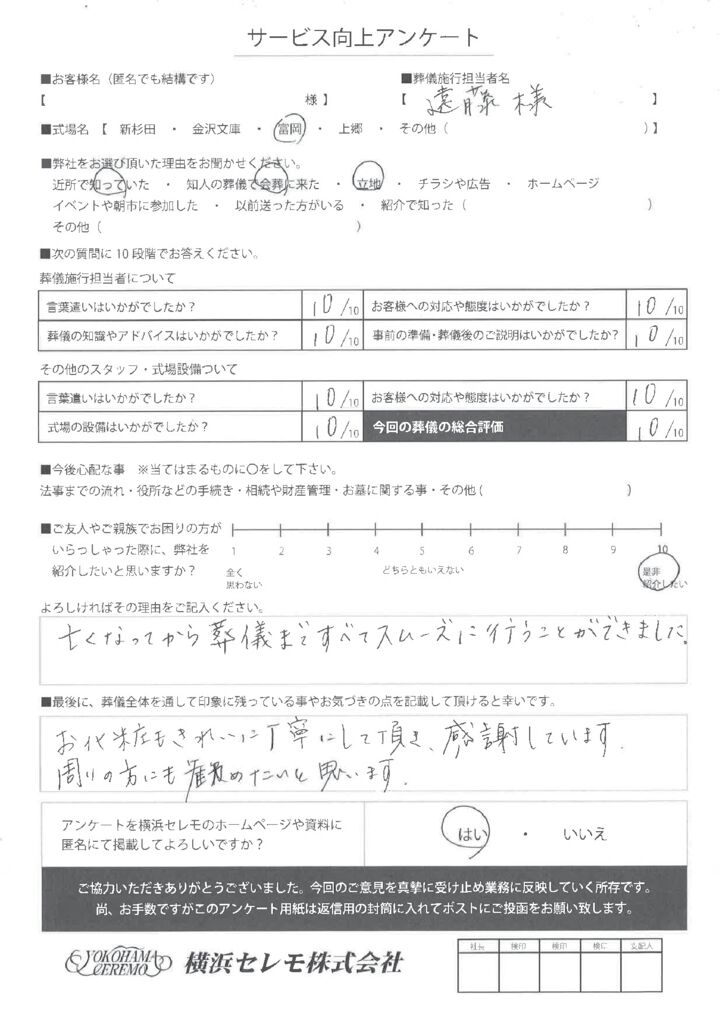 サービス向上アンケート
■お客様名(匿名でも結構です)
■葬儀施行担当者名
【 様】
【 遠藤 様 】
■式場名【 新杉田 ・ 金沢文庫 ・ 富岡 ・ 上郷 ・ その他( )】
■弊社をお選び頂いた理由をお聞かせください。
近所で知っていた ・ 知人の葬儀で会葬に来た ・ 立地 ・ チラシや広告 ・ ホームページ
イベントや朝市に参加した ・ 以前送った方がいる ・ 紹介で知った( )
その他( )
■次の質問に10段階でお答えください。
葬儀施行担当者について
言葉遣いはいかがでしたか? 10/10 お客様への対応や態度はいかがでしたか? 10/10
葬儀の知識やアドバイスはいかがでしたか? 10/10 事前の準備・葬儀後のご説明はいかがでしたか? 10/10
その他のスタッフ・式場設備ついて
言葉遣いはいかがでしたか? 10/10 お客様への対応や態度はいかがでしたか? 10/10
式場の設備はいかがでしたか? 10/10 今回の葬儀の総合評価 10/10
■今後心配な事 ※当てはまるものに〇をして下さい。
法事までの流れ・役所などの手続き・相続や財産管理・お墓に関する事・その他( )
■ご友人やご親族でお困りの方が
いらっしゃった際に、弊社を
紹介したいと思いますか?
1 2 3 4 5 6 7 8 9 10
全く
思わない
どちらともいえない
是非
紹介したい
よろしければその理由をご記入ください。
亡くなってから葬儀まですべてスムーズに行うことができました。
■最後に、葬儀全体を通して印象に残っている事やお気づきの点を記載して頂けると幸いです。
お化粧もきれいに丁寧にして頂き、感謝しています。
周りの方にも勧めたいと思います。
アンケートを横浜セレモのホームページや資料に
匿名にて掲載してよろしいですか?
はい ・ いいえ
ご協力いただきありがとうございました。今回のご意見を真摯に受け止め業務に反映していく所存です。
尚、お手数ですがこのアンケート用紙は返信用の封筒に入れてポストにご投函をお願い致します。
YOKOHAMA
CEREMO
横浜セレモ株式会社
社長 検印 検印 検印 支配人